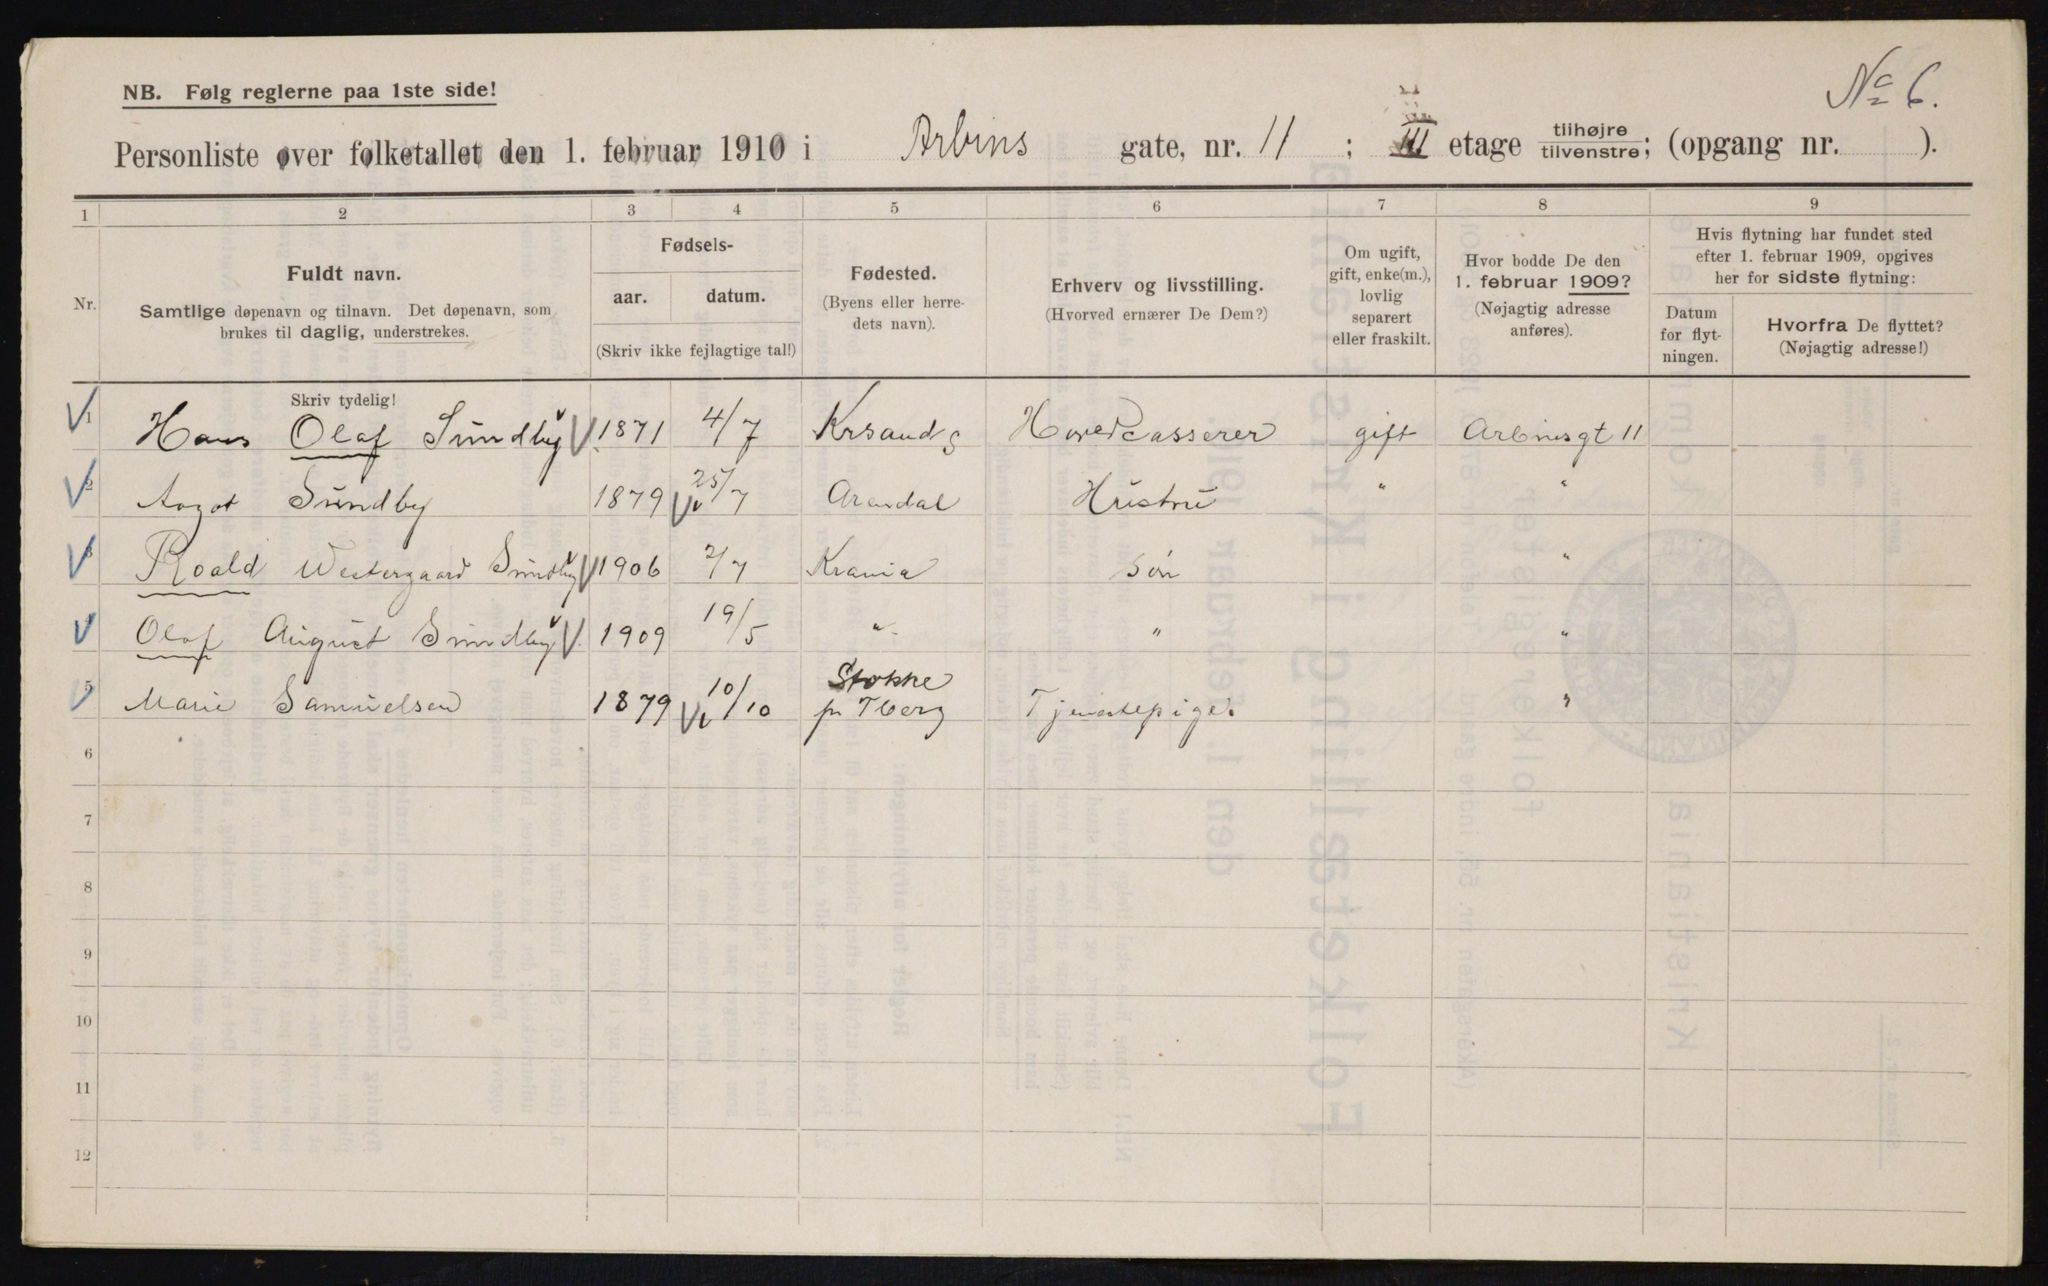 No 6.
NB. Følg reglerne paa 1ste side!
Personliste over folketallet den 1. februar 1910 i Arbins gate, nr. 11 ; III etage tilhøjre tilvenstre; (opgang nr. ).
1 2 3 4 5 6 7 8 9
Nr.
Fuldt navn.
Samtlige døpenavn og tilnavn. Det døpenavn, som
brukes til daglig, understrekes.
Fødsels-
aar. datum.
(Skriv ikke fejlagtige tal!)
Fødested.
(Byens eller herre-
dets navn).
Erhverv og livsstilling.
(Hvorved ernærer De Dem?)
Om ugift,
gift, enke(m.),
lovlig
separert
eller fraskilt.
Hvor bodde De den
1. februar 1909?
(Nøjagtig adresse
anføres).
Hvis flytning har fundet sted
efter 1. februar 1909, opgives
her for sidste flytning:
Datum
for flyt-
ningen.
Hvorfra De flyttet?
(Nøjagtig adresse!)
Skriv tydelig!
1 Hans Olaf Sundby 1871 4/7 Krsand S Hovedcasserer gift Arbinsgt 11
2 Aagot Sundby 1879 25/7 Arendal Hustru " "
3 Roald Westergaard Sundby 1906 2/7 Krania Søn "
4 Olaf August Sundby 1909 19/5 " " "
5 Marie Samuelsen 1879 10/10 Stokke pr Tberg Tjenestepige. "
6
7
8
9
10
11
12